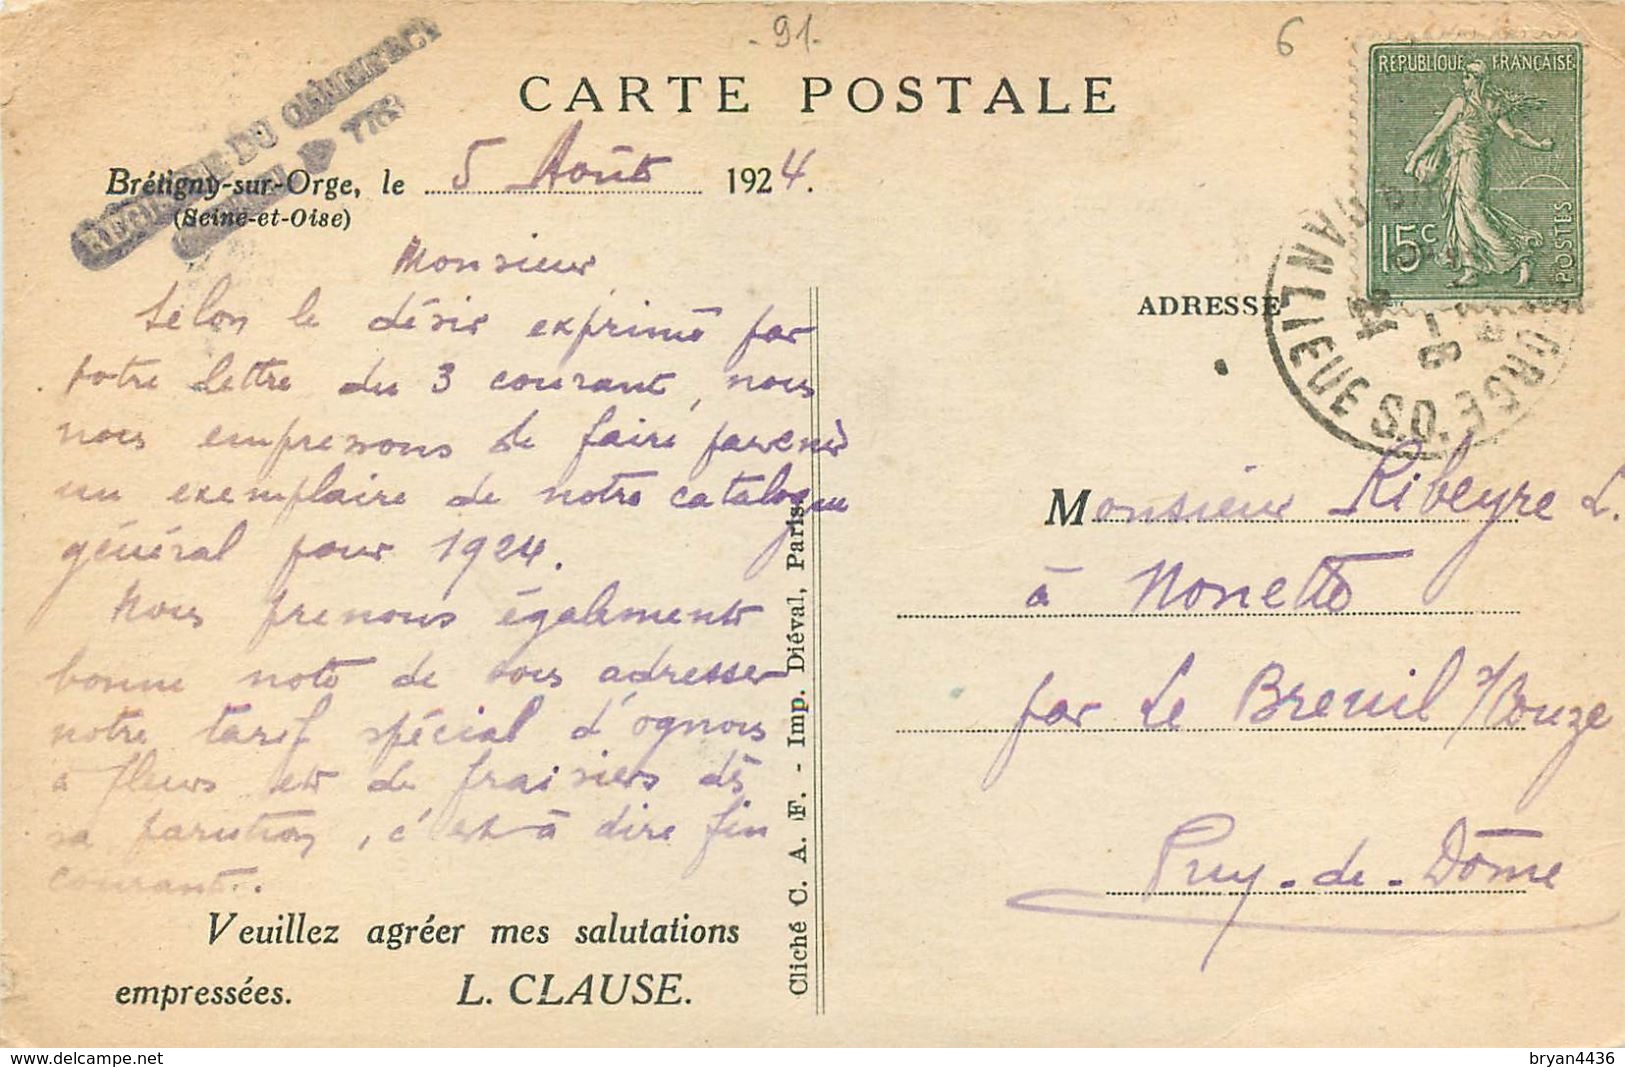 - 91 -
6
CARTE POSTALE
REGISTRE DU COMMERCE
Brétigny-sur-Orge, le 5 Août 1924.
(Seine-et-Oise)
REPUBLIQUE FRANÇAISE
15c
POSTES
Monsieur
Selon le désir exprimé par
votre lettre du 3 courant, nous
nous empressons de faire parvenir
un exemplaire de notre catalogue
général pour 1924.
Nous prenons également
bonne note de vous adresser
notre tarif spécial d'ognons
à fleurs et de fraisiers dès
sa parution, c'est à dire fin
courant.
Veuillez agréer mes salutations
empressées. L. CLAUSE.
Cliché C. A. F. - Imp. Diéval, Paris.
ADRESSE
BANLIEUE S.O. ORGE
Monsieur Ribeyre L.
à Nonette
par Le Breuil s/Couze
Puy-de-Dôme
delcampe.net
bryan4436